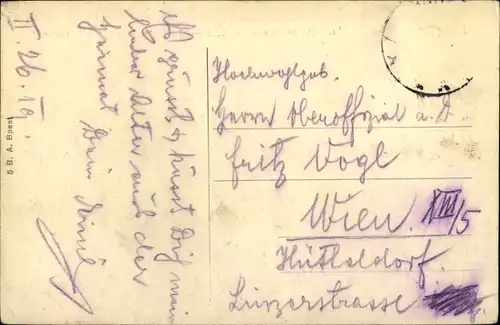 II. 26. 19.
Es grüsst & küsst Dich mein
lieber Vater aus der
Heimat
Dein Emil
5 B. A. Bpest
Hochwohlgeb.
Herrn Oberoffizial a. D.
Fritz Vogl
Wien. XIII/5
Hütteldorf.
Linzerstrasse